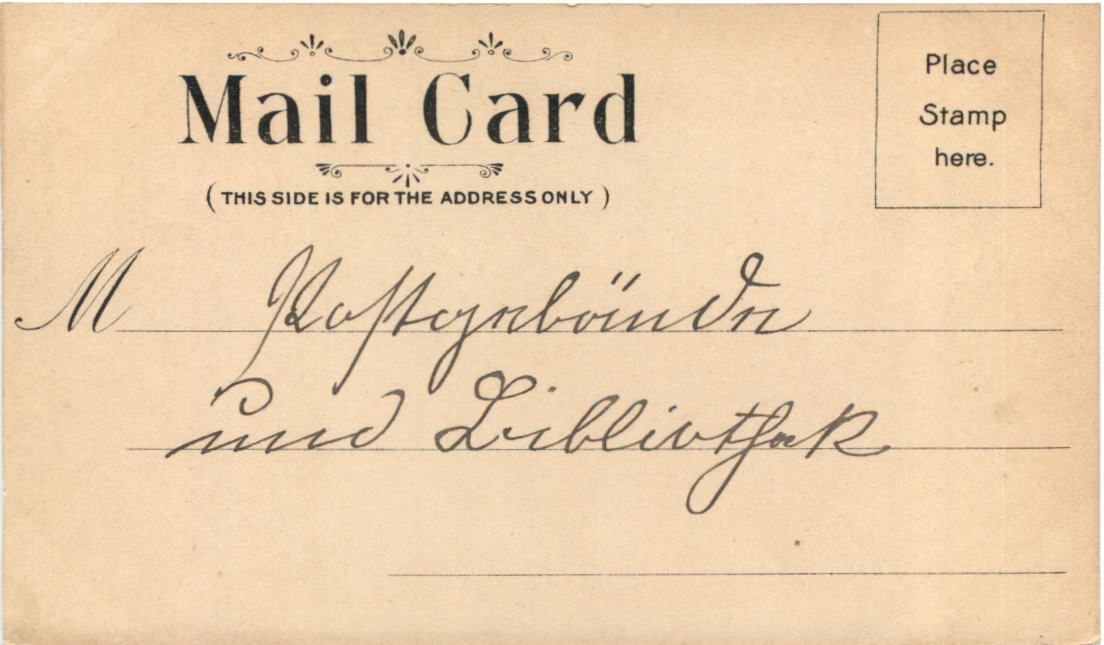 Mail Card
(THIS SIDE IS FOR THE ADDRESS ONLY)
Place
Stamp
here.
M Postgebäude
und Bibliothek